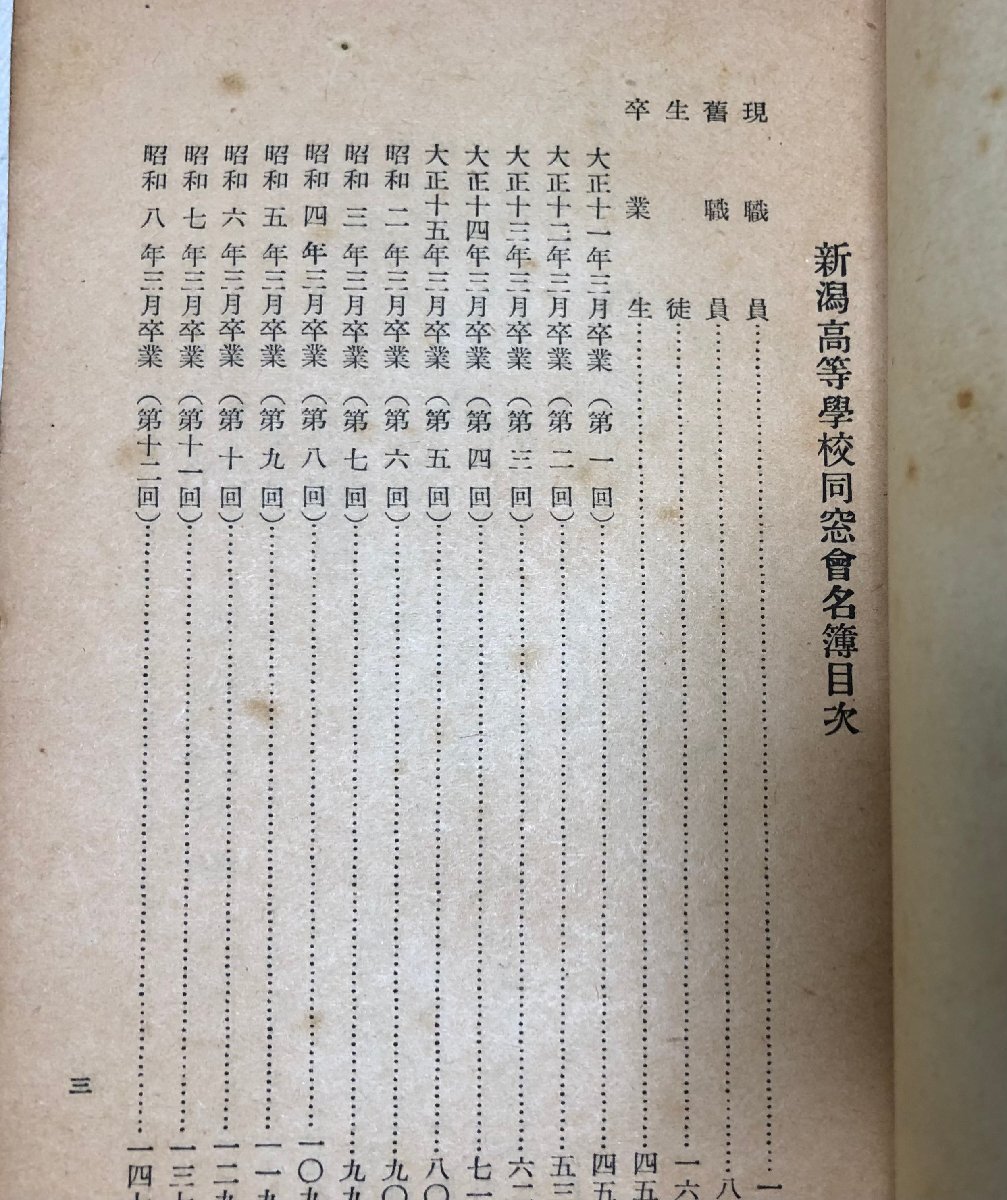 新潟高等學校同窓會名簿目次
現職員……一
舊職員……八
生徒……一六
卒業生……四五
大正十一年三月卒業（第一回）……四五
大正十二年三月卒業（第二回）……五三
大正十三年三月卒業（第三回）……六二
大正十四年三月卒業（第四回）……七一
大正十五年三月卒業（第五回）……八〇
昭和二年三月卒業（第六回）……九〇
昭和三年三月卒業（第七回）……九九
昭和四年三月卒業（第八回）……一〇九
昭和五年三月卒業（第九回）……一一九
昭和六年三月卒業（第十回）……一二九
昭和七年三月卒業（第十一回）……一三七
昭和八年三月卒業（第十二回）……一四七
三